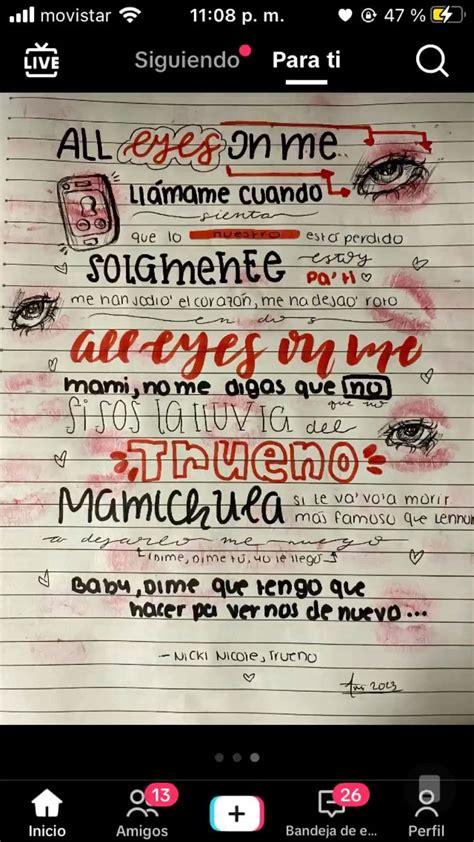 movistar 11:08 p. m. 47 %
LIVE Siguiendo Para ti
ALL eyes on me..
llámame cuando
sienta
que lo nuestro está perdido
Solamente estoy
pa' ti
me han jodio' el corazón, me ha dejao' roto
en dos
all eyes on me
mami, no me digas que no
que no
si sos la lluvia del
Trueno
Mamichula si te va' vo'a morir
más famoso que Lennon
a dejarlo me niego
dime, dime tú, yo le llego
Baby, dime que tengo que
hacer pa vernos de nuevo...
- Nicki Nicole, Trueno
2023
13 26
Inicio Amigos Bandeja de e... Perfil